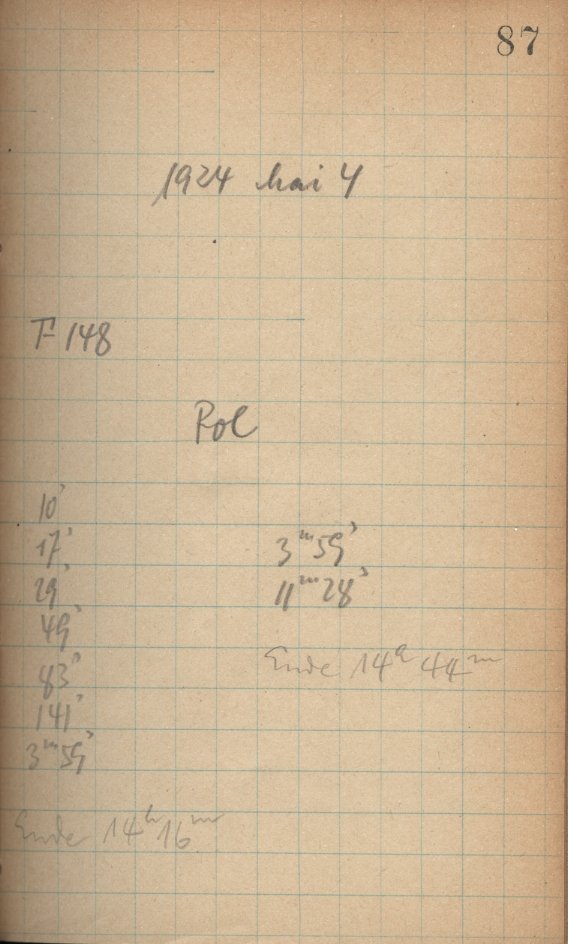 87
1924 Mai 4
F 148
Pol
10ˢ
17ˢ
29ˢ
49ˢ
83ˢ
141ˢ
3ᵐ59ˢ
Ende 14ʰ16ᵐ
3ᵐ59ˢ
11ᵐ28ˢ
Ende 14ʰ44ᵐ